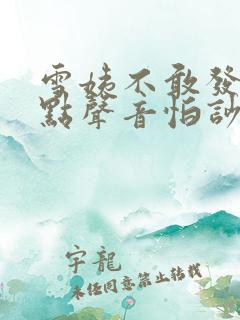 雪姨不敢發
點聲音怕訬
宇龍
未任同意禁止转载